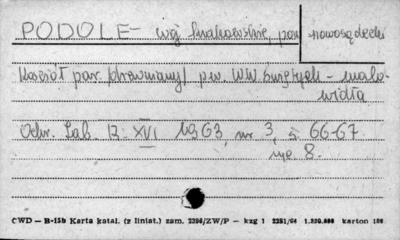 PODOLE - woj krakowskie, pow nowosądecki
Kościół par. /drewniany/ p.w. WW Świętych - malo-
widła
Ochr. Zab. R. XVI 1963, nr 3, s. 66-67
ryc. 8.
CWD — B-15b Karta katal. (z liniat.) zam. 2286/ZW/P — kzg 1 2251/64 1.220.000 karton